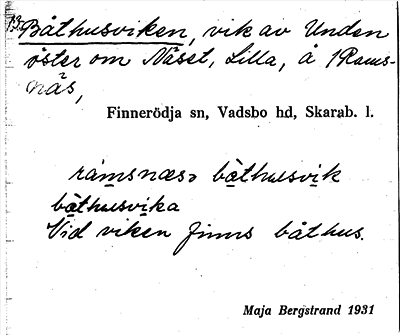 13. Båthusviken, vik av Unden
öster om Näset, Lilla, å 1 Rams-
näs,
Finnerödja sn, Vadsbo hd, Skarab. l.
ramsnæsə båthusvik
båthusvika
Vid viken finns båthus.
Maja Bergstrand 1931